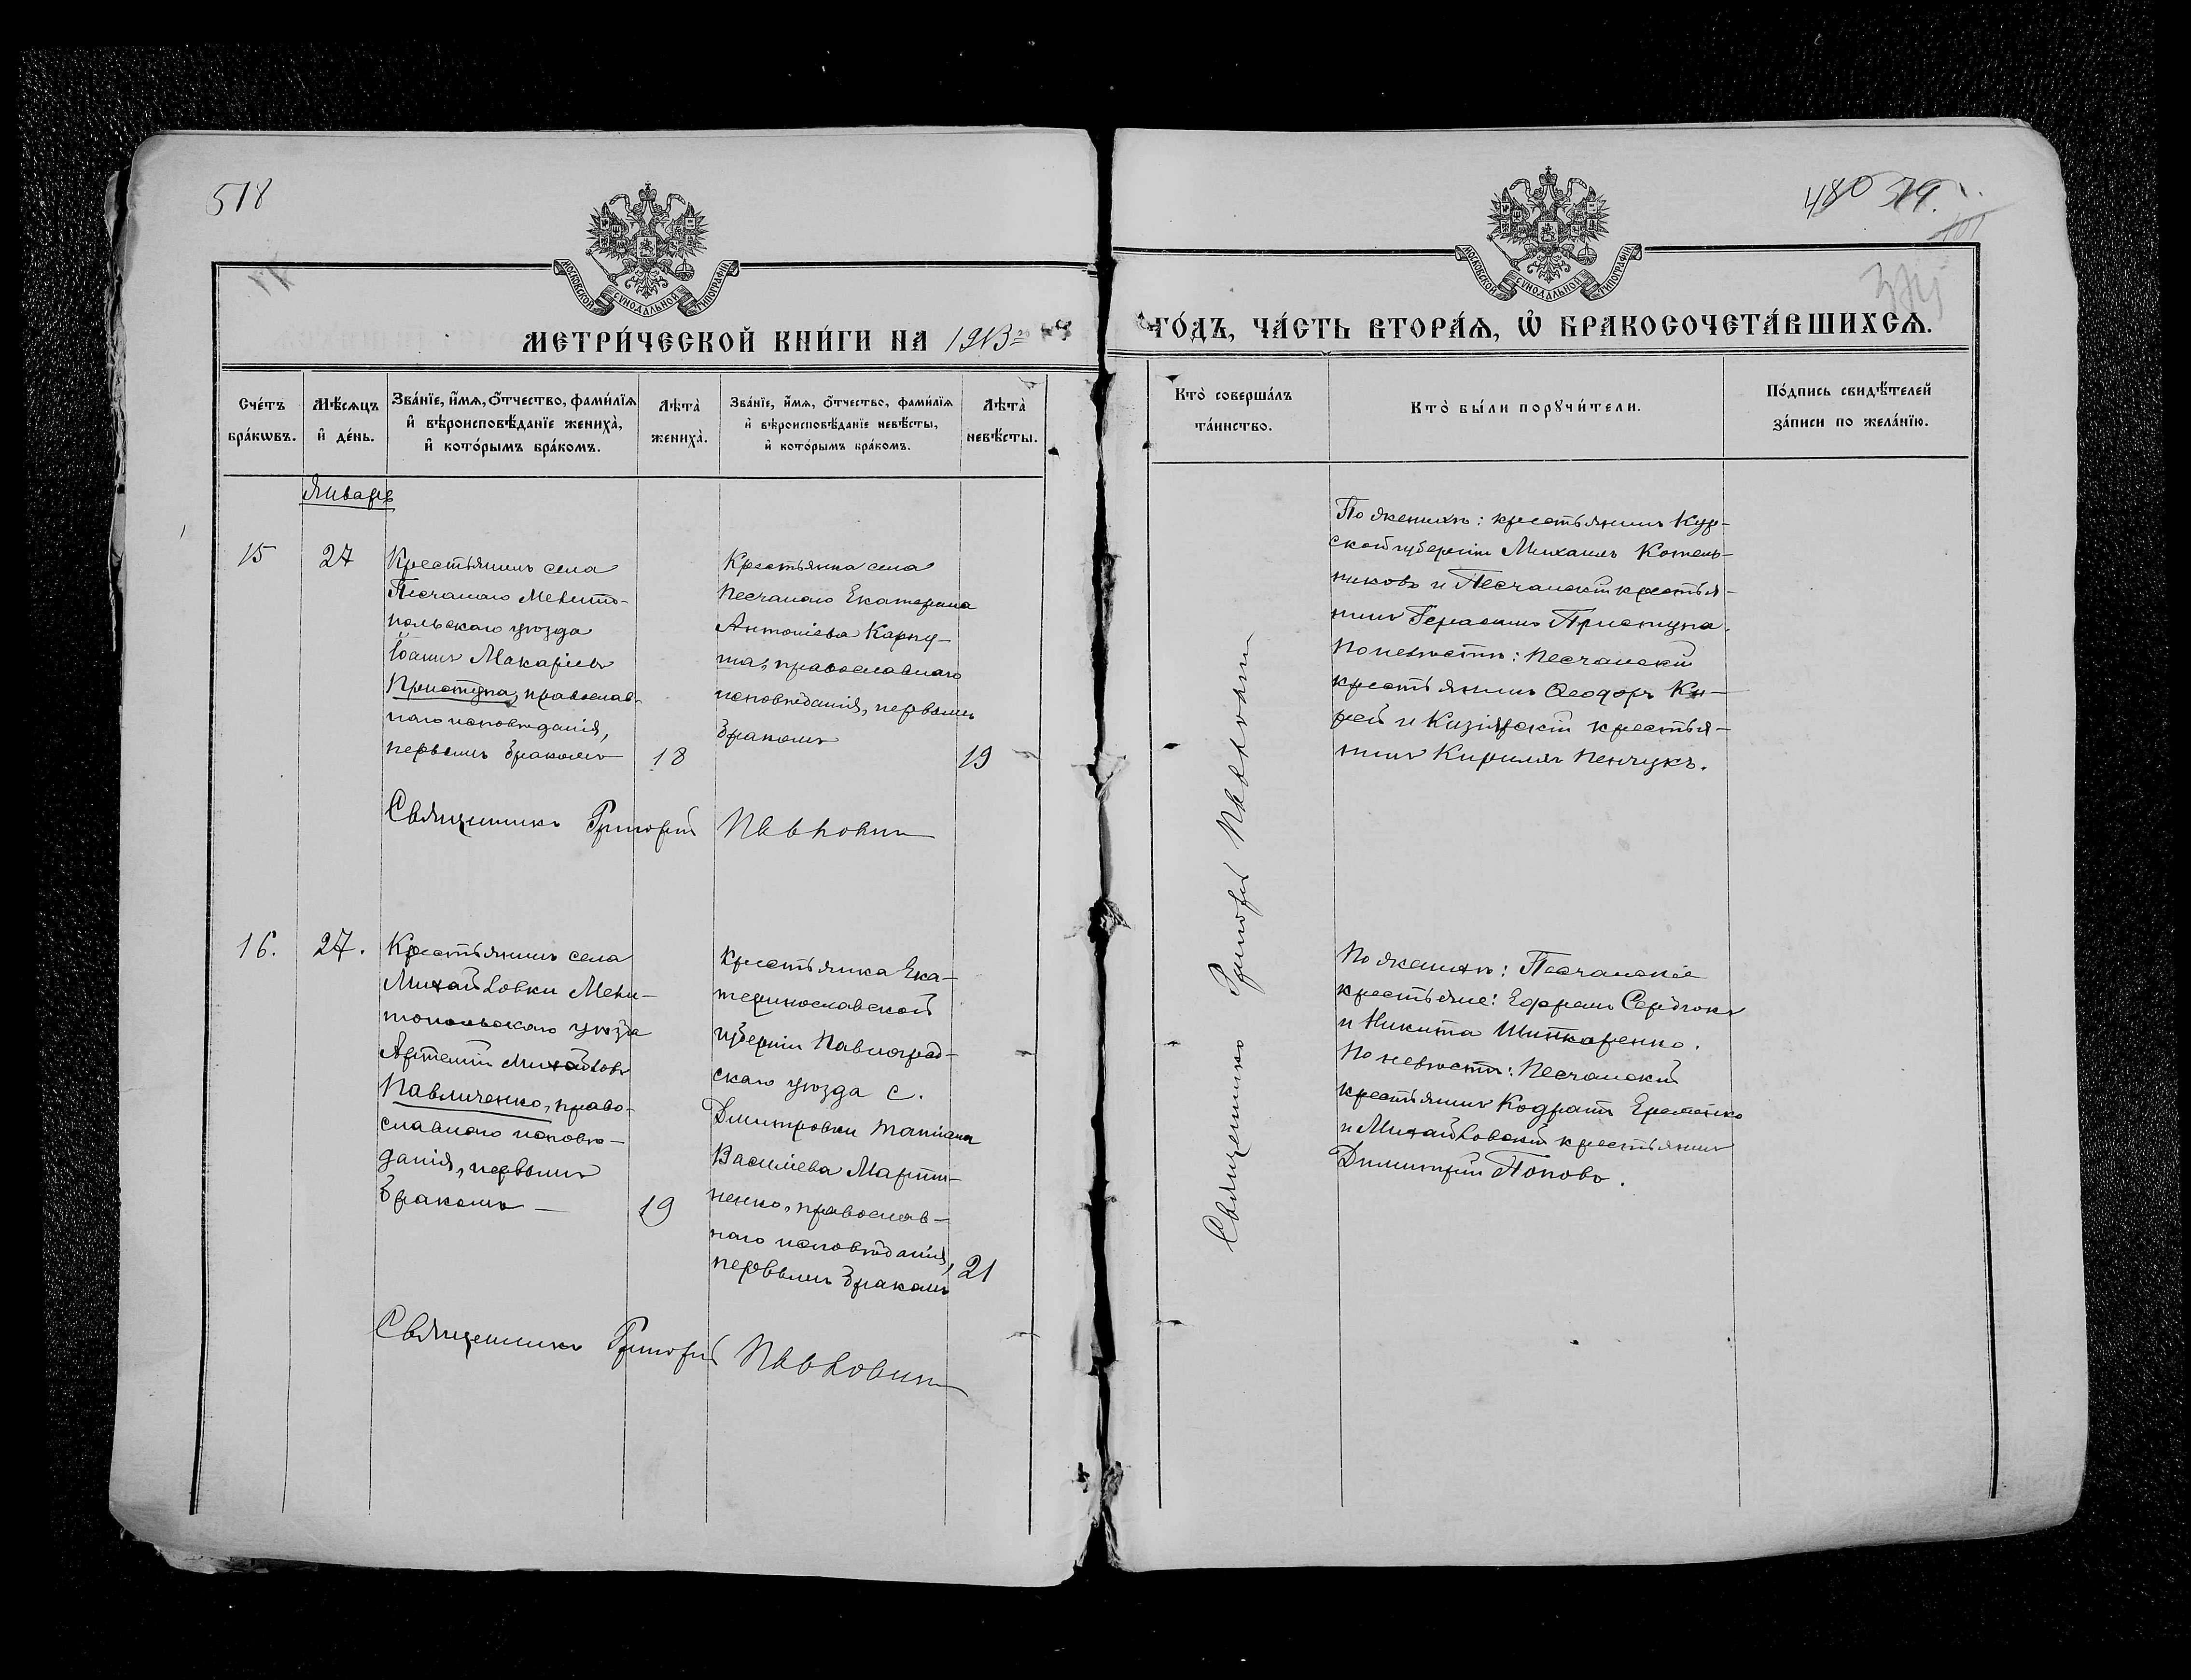 518
МОСКОВСКОЙ СѴНОДАЛЬНОЙ ТИПОГРАФІИ
МЕТРИ́ЧЕСКОЙ КНИ́ГИ НА 1913
Сче́тъ бра́кѡвъ.
Мѣ́сяцъ и҆ де́нь.
Зва́нїе, и҆́мѧ, ѻ҆́тчество, фами́лїѧ
и҆ вѣроисповѣ́данїе жениха̀,
и҆ кото́рымъ бра́комъ.
Лѣта̀ жениха̀.
Зва́нїе, и҆́мѧ, ѻ҆́тчество, фами́лїѧ
и҆ вѣроисповѣ́данїе невѣ́сты,
и҆ кото́рымъ бра́комъ.
Лѣта̀ невѣ́сты.
Январь
15
27
Крестьянинъ села
Песчанаго Мелито-
польскаго уѣзда
Іоаннъ Макаріевъ
Приступа, православ-
наго исповѣданія,
первымъ бракомъ
18
Крестьянка села
Песчанаго Екатерина
Антоніева Карпу-
та, православнаго
исповѣданія, первымъ
бракомъ
19
Священникъ Григорій
16.
27.
Крестьянинъ села
Михайловки Мели-
топольскаго уѣзда
Артемій Михайловъ
Павличенко, право-
славнаго исповѣ-
данія, первымъ
бракомъ
19
Крестьянка Ека-
теринославской
губерніи Павлоград-
скаго уѣзда с.
Дмитровки Татіана
Василіева Марти-
ненко, православ-
наго исповѣданія,
первымъ бракомъ
21
Священникъ Григорій
480 519.
МОСКОВСКОЙ СѴНОДАЛЬНОЙ ТИПОГРАФІИ
ГО́ДЪ, ЧА́СТЬ ВТОРА́Ѧ, Ѽ БРАКОСОЧЕТА́ВШИХСѦ.
Кто̀ соверша́лъ
та́инство.
Кто̀ бы́ли порꙋчи́тели.
По́дпись свидѣ́телей
за́писи по жела́нїю.
Священникъ Григорій
По женихѣ: крестьянинъ Кур-
ской губерніи Михаилъ Котель-
никовъ и Песчанскій крестья-
нинъ Герасимъ Приступа.
По невѣстѣ: Песчанскій
крестьянинъ Ѳеодоръ Ки-
рей и Кизіярскій крестья-
нинъ Кириллъ Пенчукъ.
По женихѣ: Песчанскіе
крестьяне: Ефремъ Сердюкъ
и Никита Шинкаренко.
По невѣстѣ: Песчанскій
крестьянинъ Кодратъ Еременко
и Михайловскій крестьянинъ
Димитрій Поповъ.